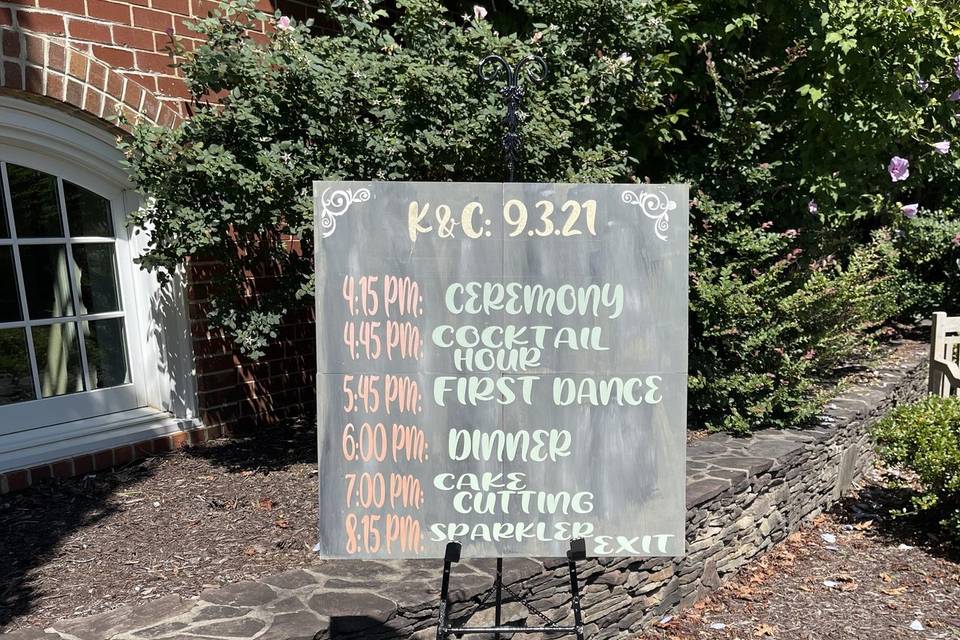 K&C: 9.3.21
4:15 PM: CEREMONY
4:45 PM: COCKTAIL
HOUR
5:45 PM: FIRST DANCE
6:00 PM: DINNER
7:00 PM: CAKE
CUTTING
8:15 PM: SPARKLER EXIT